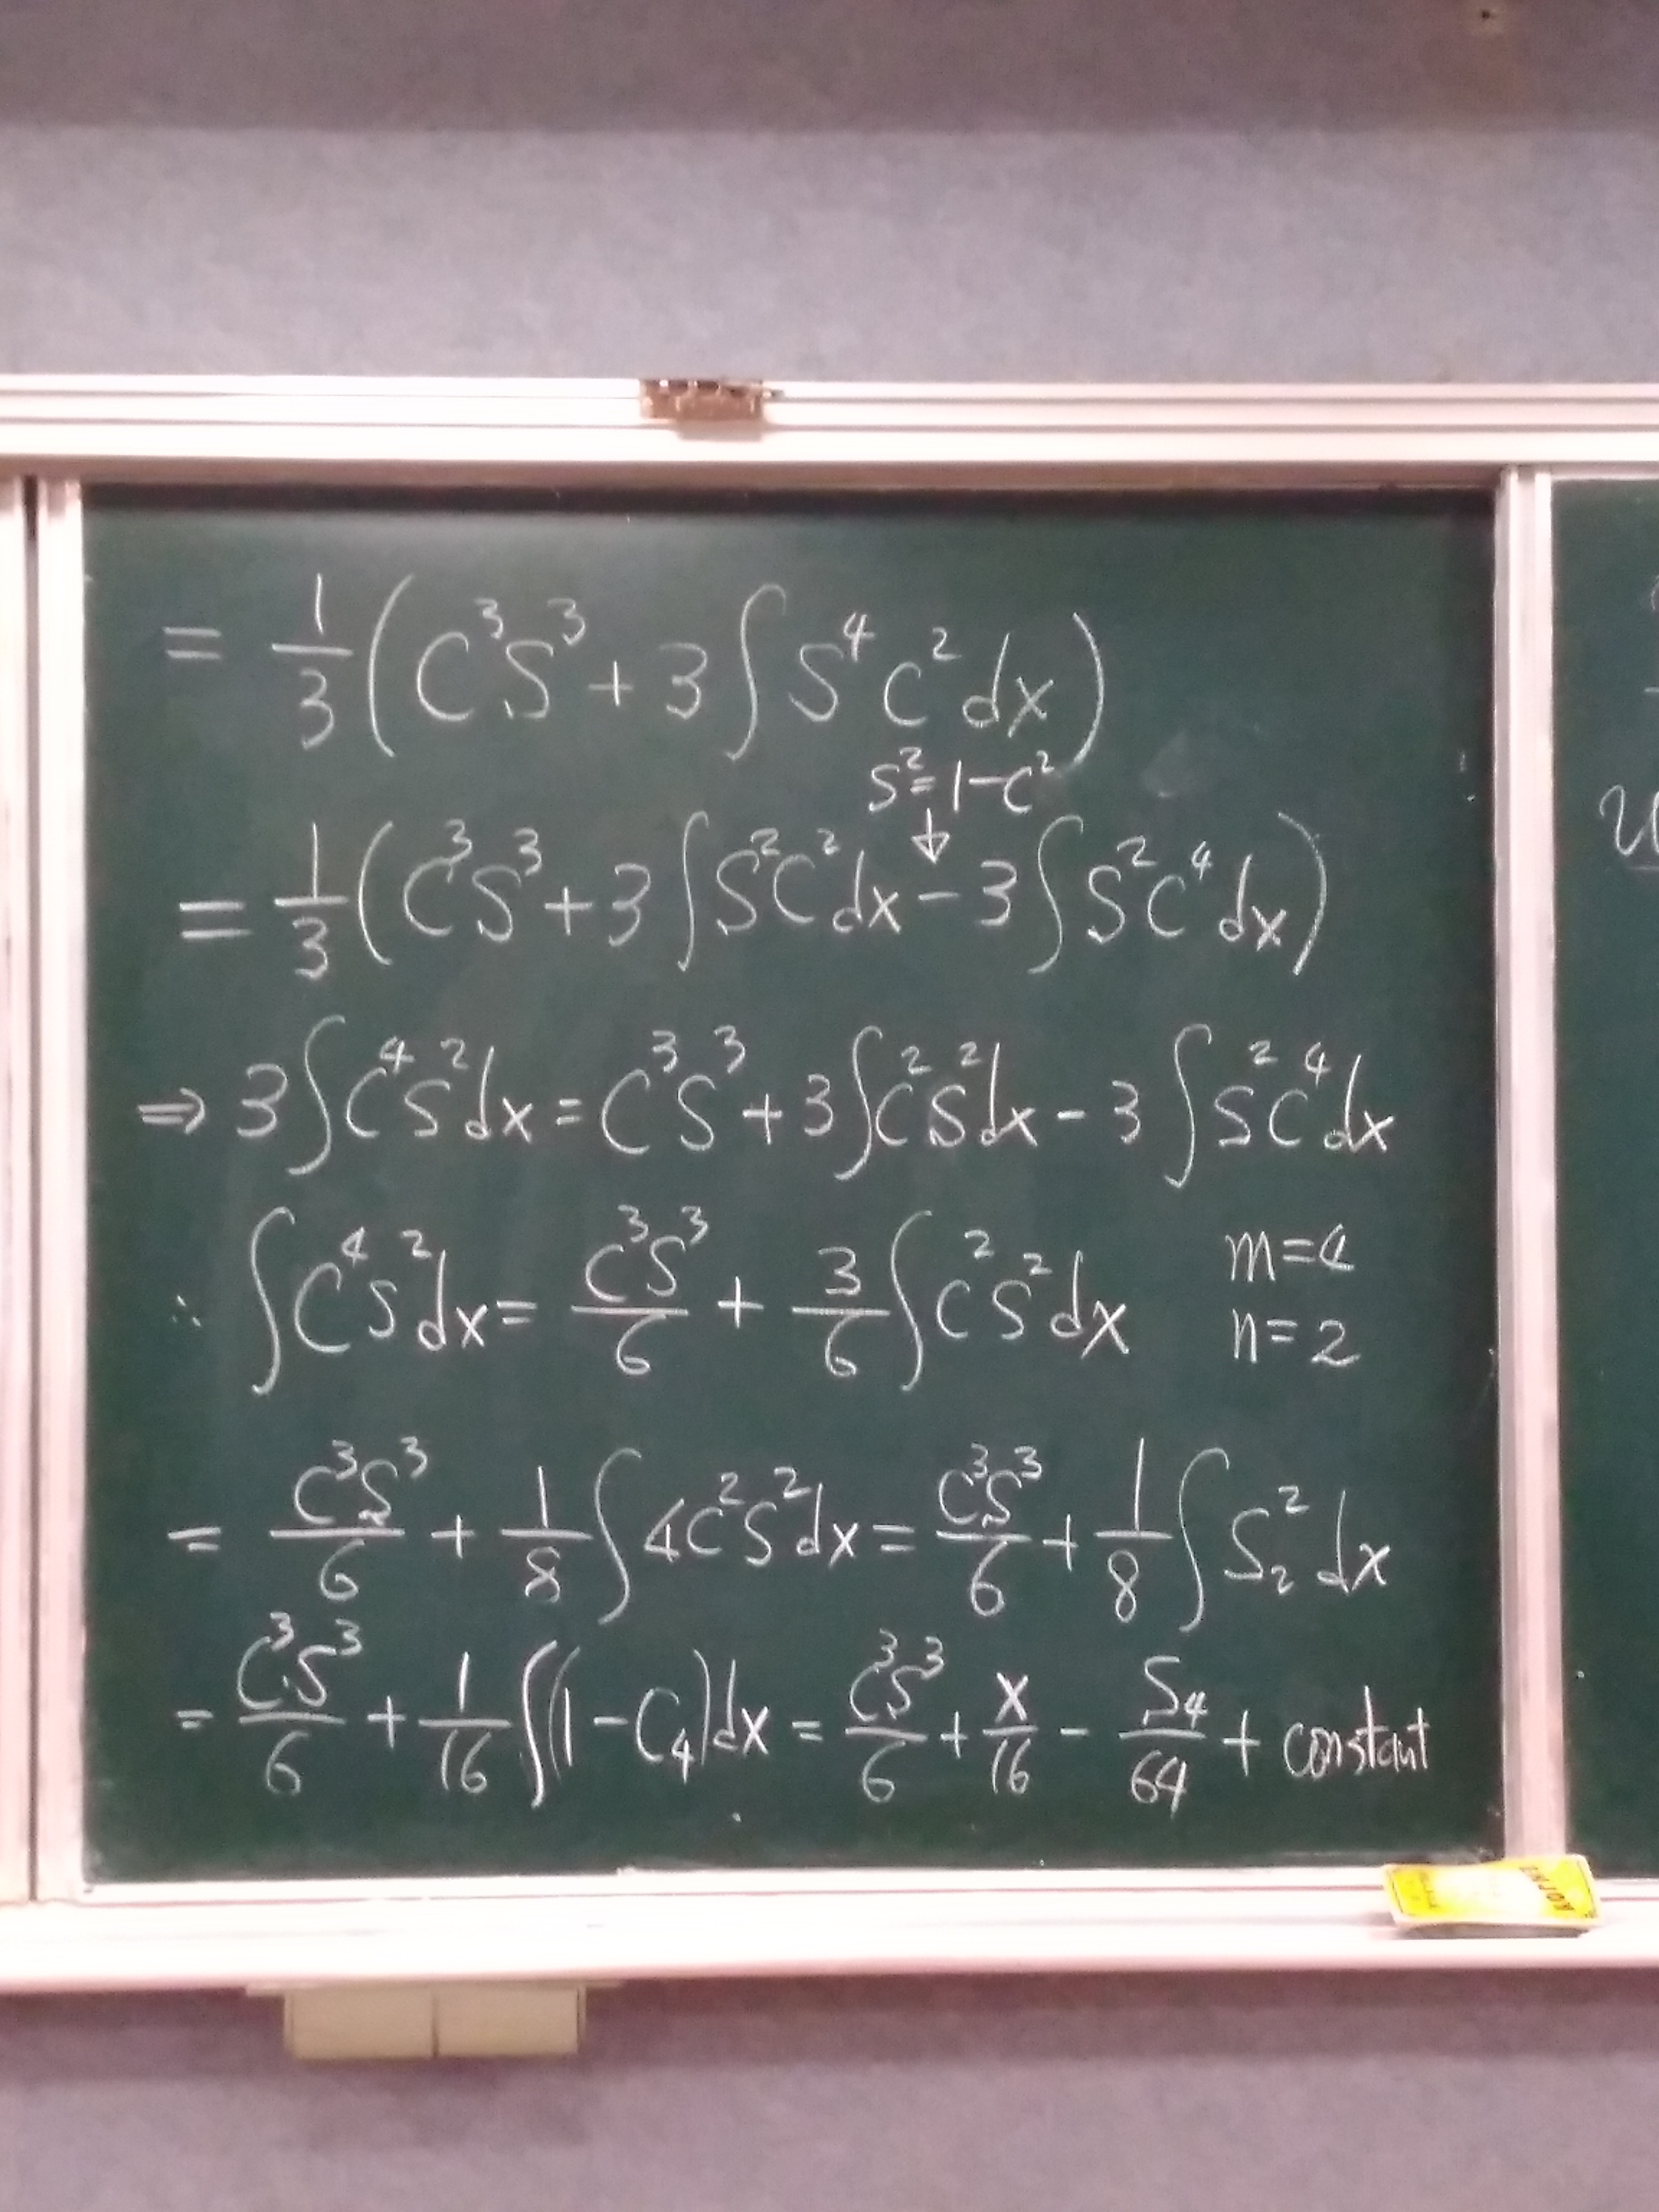 = 1/3 (C³S³ + 3∫S⁴C²dx)
S² = 1-C²
↓
= 1/3 (C³S³ + 3∫S²C²dx - 3∫S²C⁴dx)
⇒ 3∫C⁴S²dx = C³S³ + 3∫C²S²dx - 3∫S²C⁴dx
∴ ∫C⁴S²dx = C³S³/6 + 3/6 ∫C²S²dx m=4
n=2
= C³S³/6 + 1/8 ∫4C²S²dx = C³S³/6 + 1/8 ∫S₂²dx
= C³S³/6 + 1/16 ∫(1-C₄)dx = C³S³/6 + x/16 - S₄/64 + constant